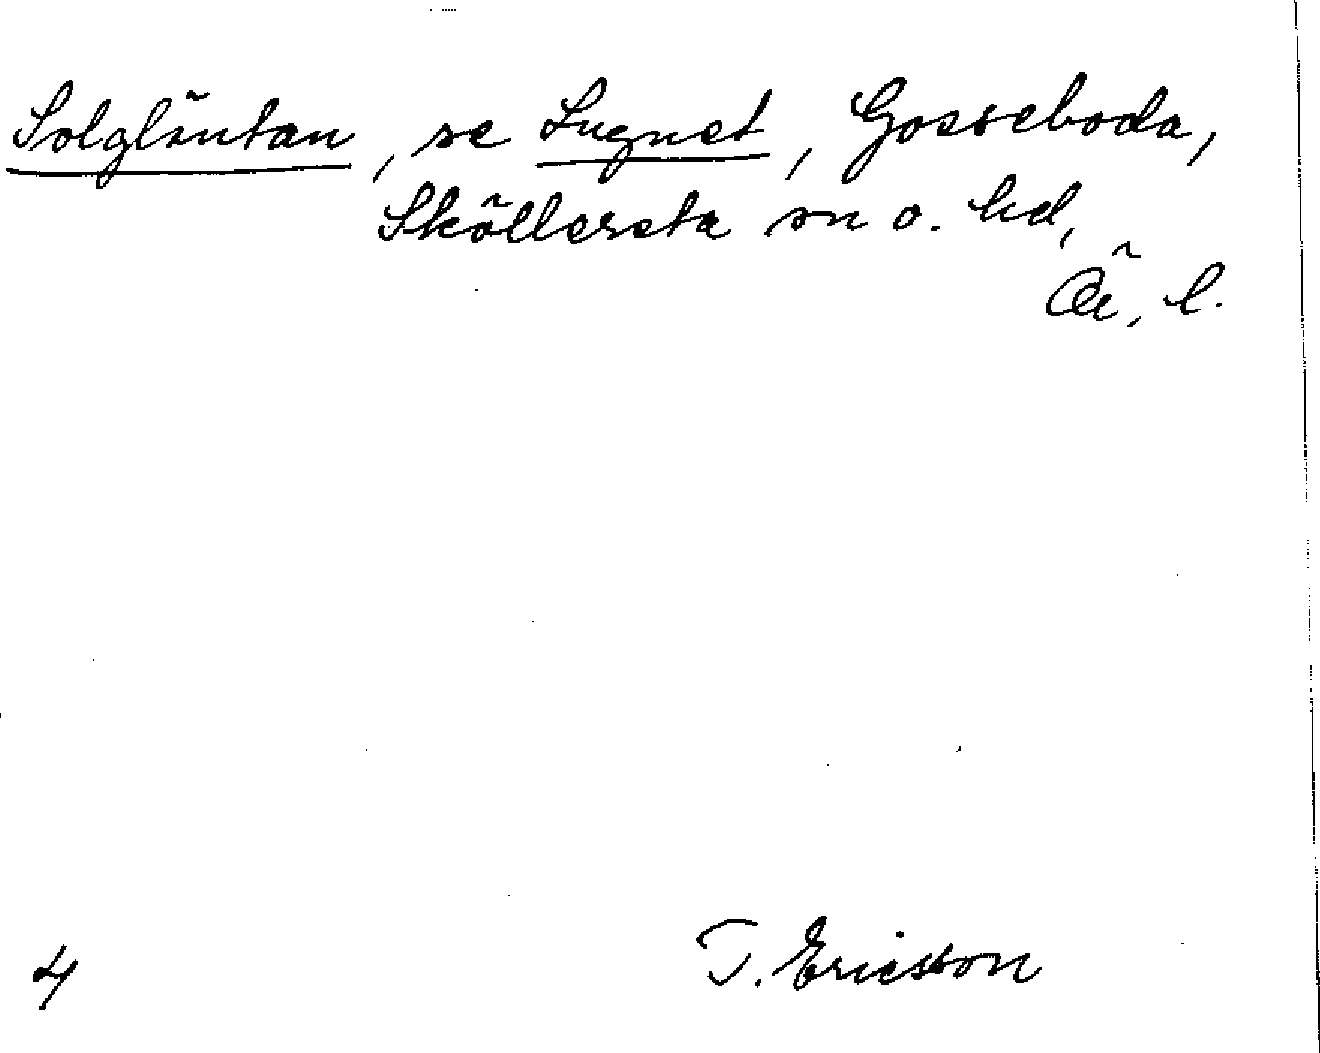 Solgläntan, se Lugnet, Gosseboda,
Sköllersta sn o. hd,
Ör. l.
T. Ericsson
4